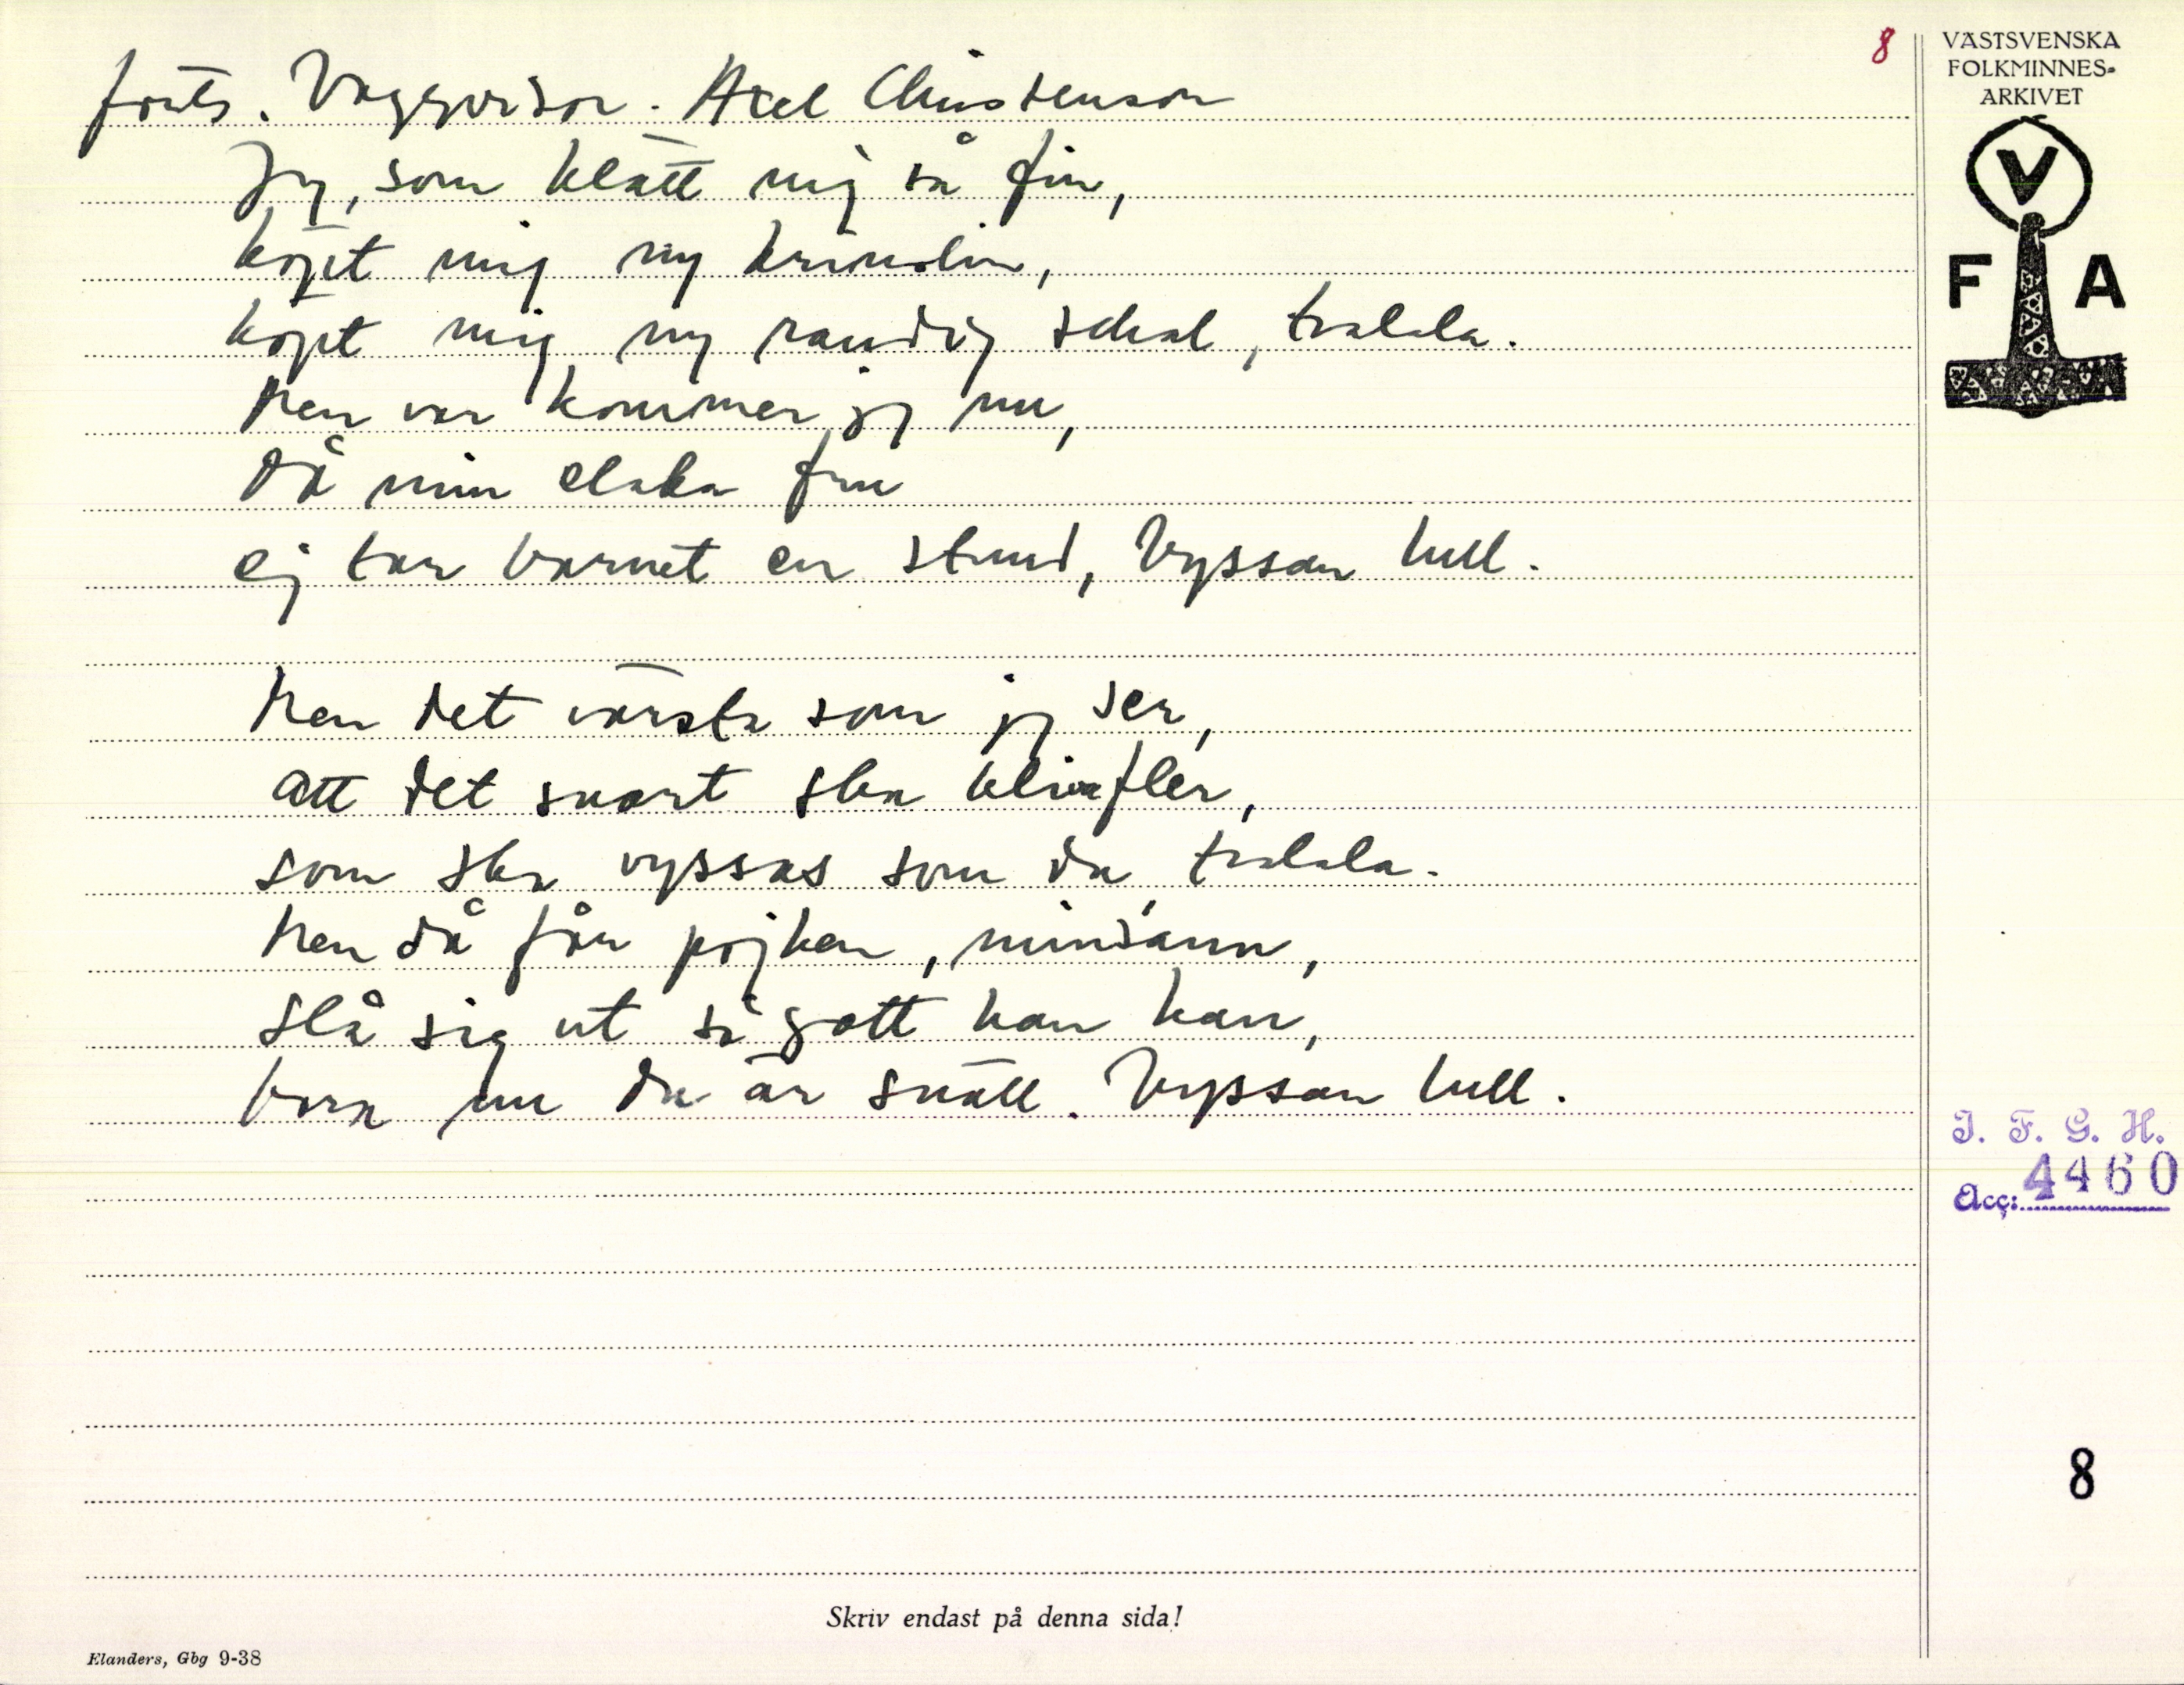 8
forts. Vaggvisor. Axel Christenson
Jag, som klätt mig så fin,
köpt mig ny krinolin,
köpt mig ny randig schal, tralala.
Men var kommer jag nu,
då min elaka fru
ej tar barnet en stund, Vyssan lull.
Men det värsta som jag ser,
att det snart ska bliva fler,
som ska vyssas som du, tralala.
Men då får pojken, minsann,
slå sig ut så gott han kan,
bara nu du är snäll. Vyssan lull.
VÄSTSVENSKA
FOLKMINNES-
ARKIVET
V
F A
I. F. G. H.
Acc: 4460
8
Skriv endast på denna sida!
Elanders, Gbg 9-38